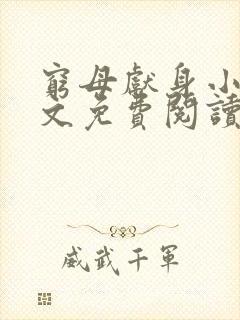 窮母獻身小
文免費閱讀
威武千軍